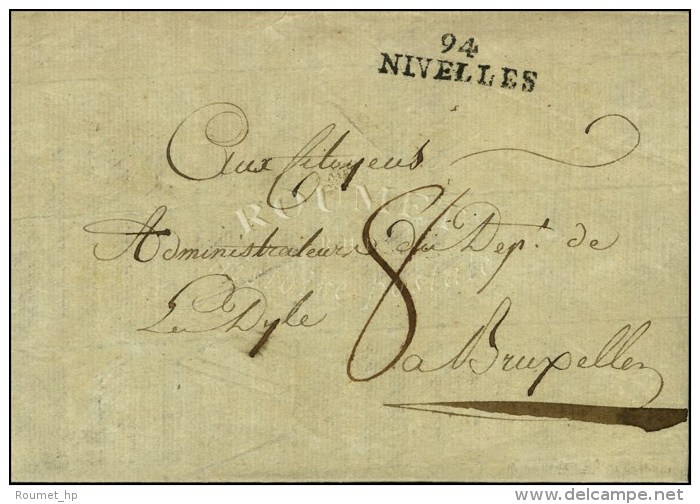 94
NIVELLES
Aux Citoyens
Administrateurs du Dept. de
La Dyle
8
a Bruxelles
ROUMET
© Roumet_hp
DELCAMPE.NET